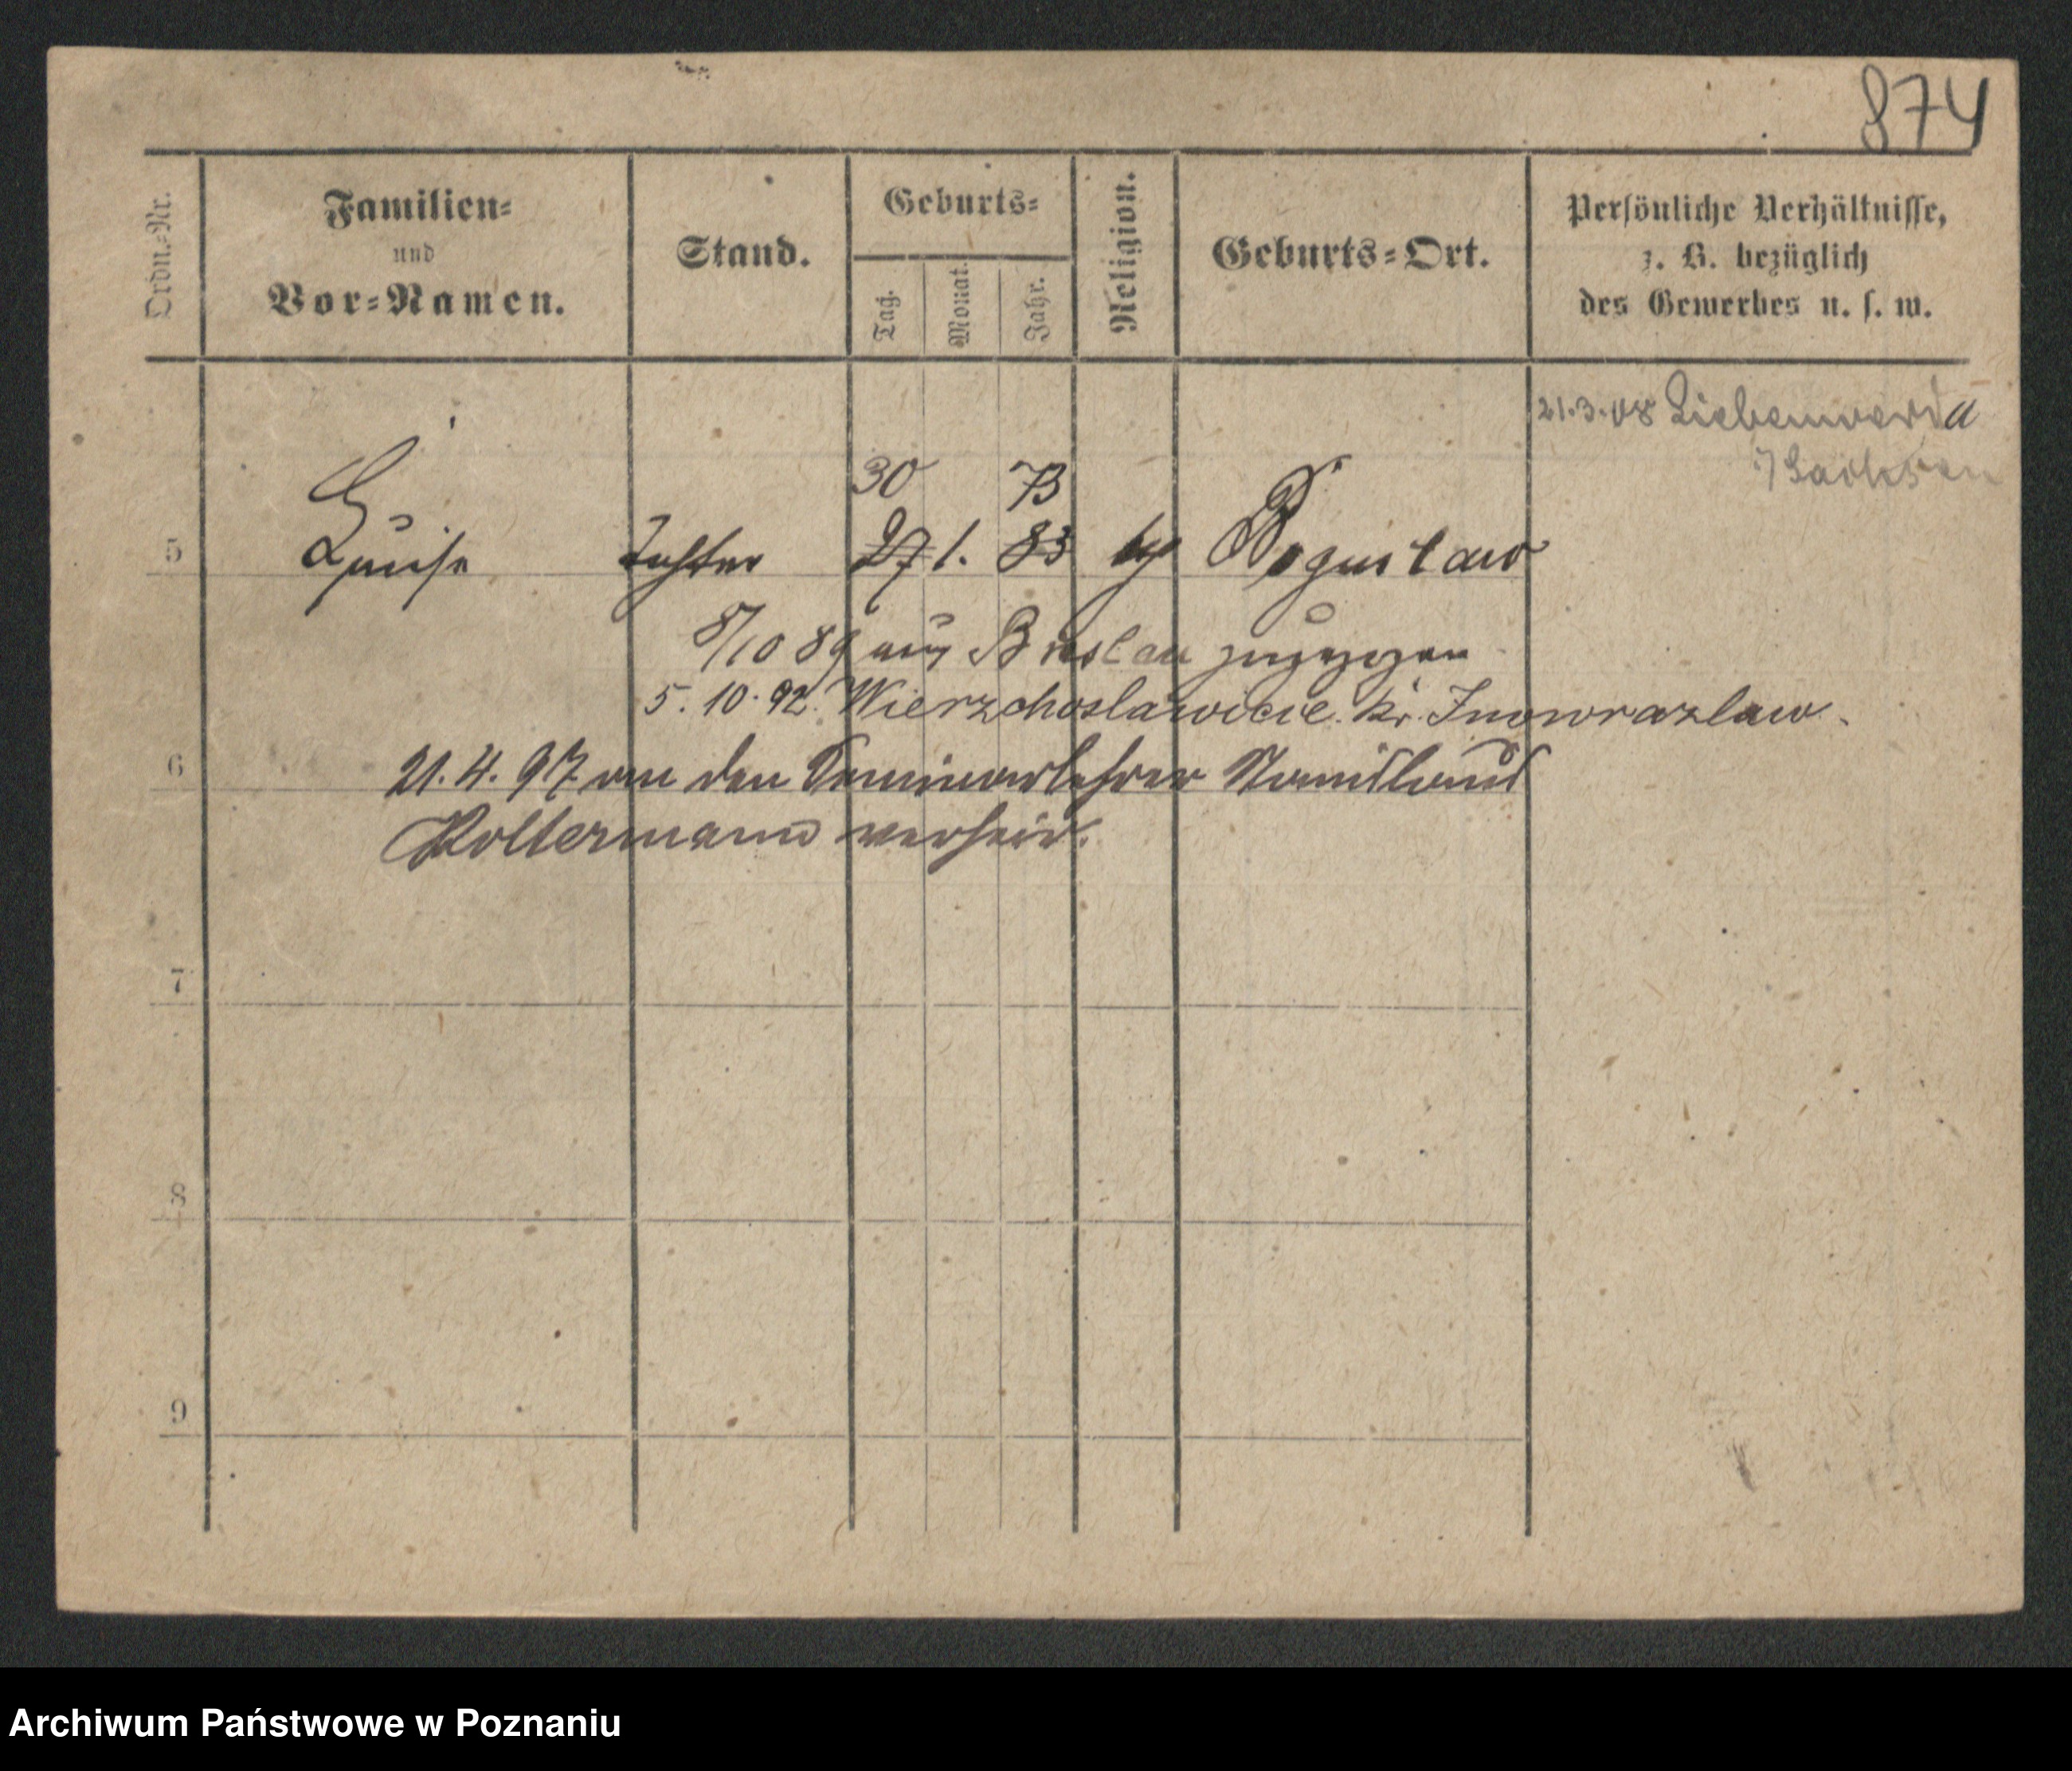 874
Ordn.-Nr.
Familien-
und
Vor-Namen.
Stand.
Geburts-
Tag.
Monat.
Jahr.
Religion.
Geburts-Ort.
Persönliche Verhältnisse,
z. B. bezüglich
des Gewerbes u. s. w.
21.3.08 Liebenwerda
Sachsen
30 73
5 Luise Tochter 27 1. 83 Boguslaw
8/10 89 aus Breslau zugezogen
5. 10. 92. Wierzchoslawice. Kr. Inowrazlaw.
6 21. 4. 97 an den Seminarlehrer
Holtermann verheir.
7
8
9
Archiwum Państwowe w Poznaniu